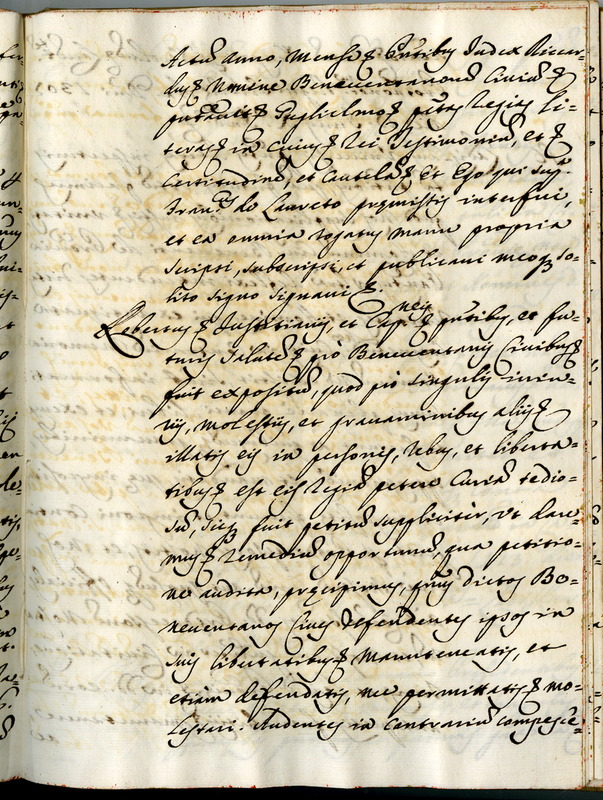 Actũ anno, Mense & Pñtibus Iudex Riccar-
dus & nomine Beneventanorũ Civiũ &
pntavit & Guglielmo & pntes Regias li-
teras & in cuius Rei Testimoniũ, et &
Certitudinẽ, et Cautelã & Et Ego qui sup.ª
Fran.s de Laureto premissis interfui,
et ea omnia rogatus manu propria
scripsi, subscripsi, et publicavi meoq so-
lito signo signavi &.
Robertus & Iustitiarijs, et Cap.neis & pñtibus, et fu-
turis Salutẽ & pro Beneventanis Civibus &
fuit expositũ, quod pro singulis iniu-
rijs, molestijs, et gravaminibus alijs &
illatis eis in personis, rebus, et liberta-
tibus & est eis Regiã petere Curiã tedio-
sũ, sicq fuit petitũ suppliciter, ut dare-
mus & remediũ opportunũ, qua petitio-
ne audita, precipimus, dictos Be-
neventanos Cives defendentes ipsos in
suis libertatibus & manuteneatis, et
etiam defendatis, nec permittatis & mo-
lestari. Audentes in contrariũ compescẽ-